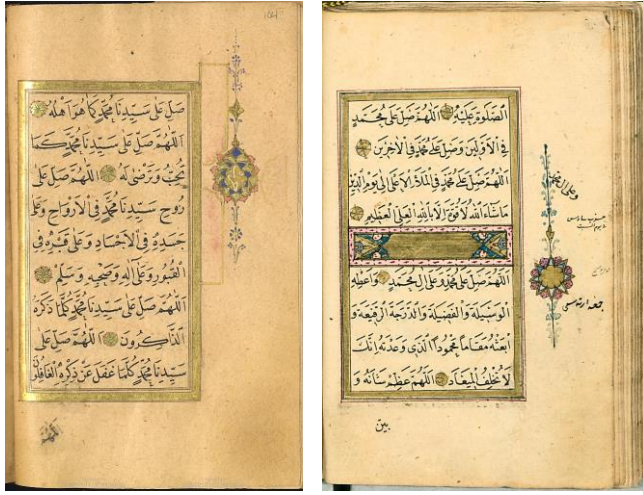 صل على سيدنا محمد كما هو اهله
اللهم صل على سيدنا محمد كما
تحب وترضى له اللهم صل على
روح سيدنا محمد في الارواح وعلى
جسده في الاجساد وعلى قبره في
القبور وعلى آله وصحبه وسلم
اللهم صل على سيدنا محمد كلما ذكره
الذاكرون اللهم صل على
سيدنا محمد كلما غفل عن ذكره الغافلون
اللهم
الصلوة عليه اللهم صل على محمد
في الاولين وصل على محمد في الاخرين
اللهم صل على محمد في الملاء الاعلى الى يوم الدين
ما شاء الله لا قوة الا بالله العلي العظيم
اللهم صل على محمد وعلى ال محمد واعطه
الوسيلة والفضيلة والدرجة الرفيعة و
ابعثه مقاما محمودا الذي وعدته انك
لا تخلف الميعاد اللهم عظم شانه و
بين
وعلى ال محمد